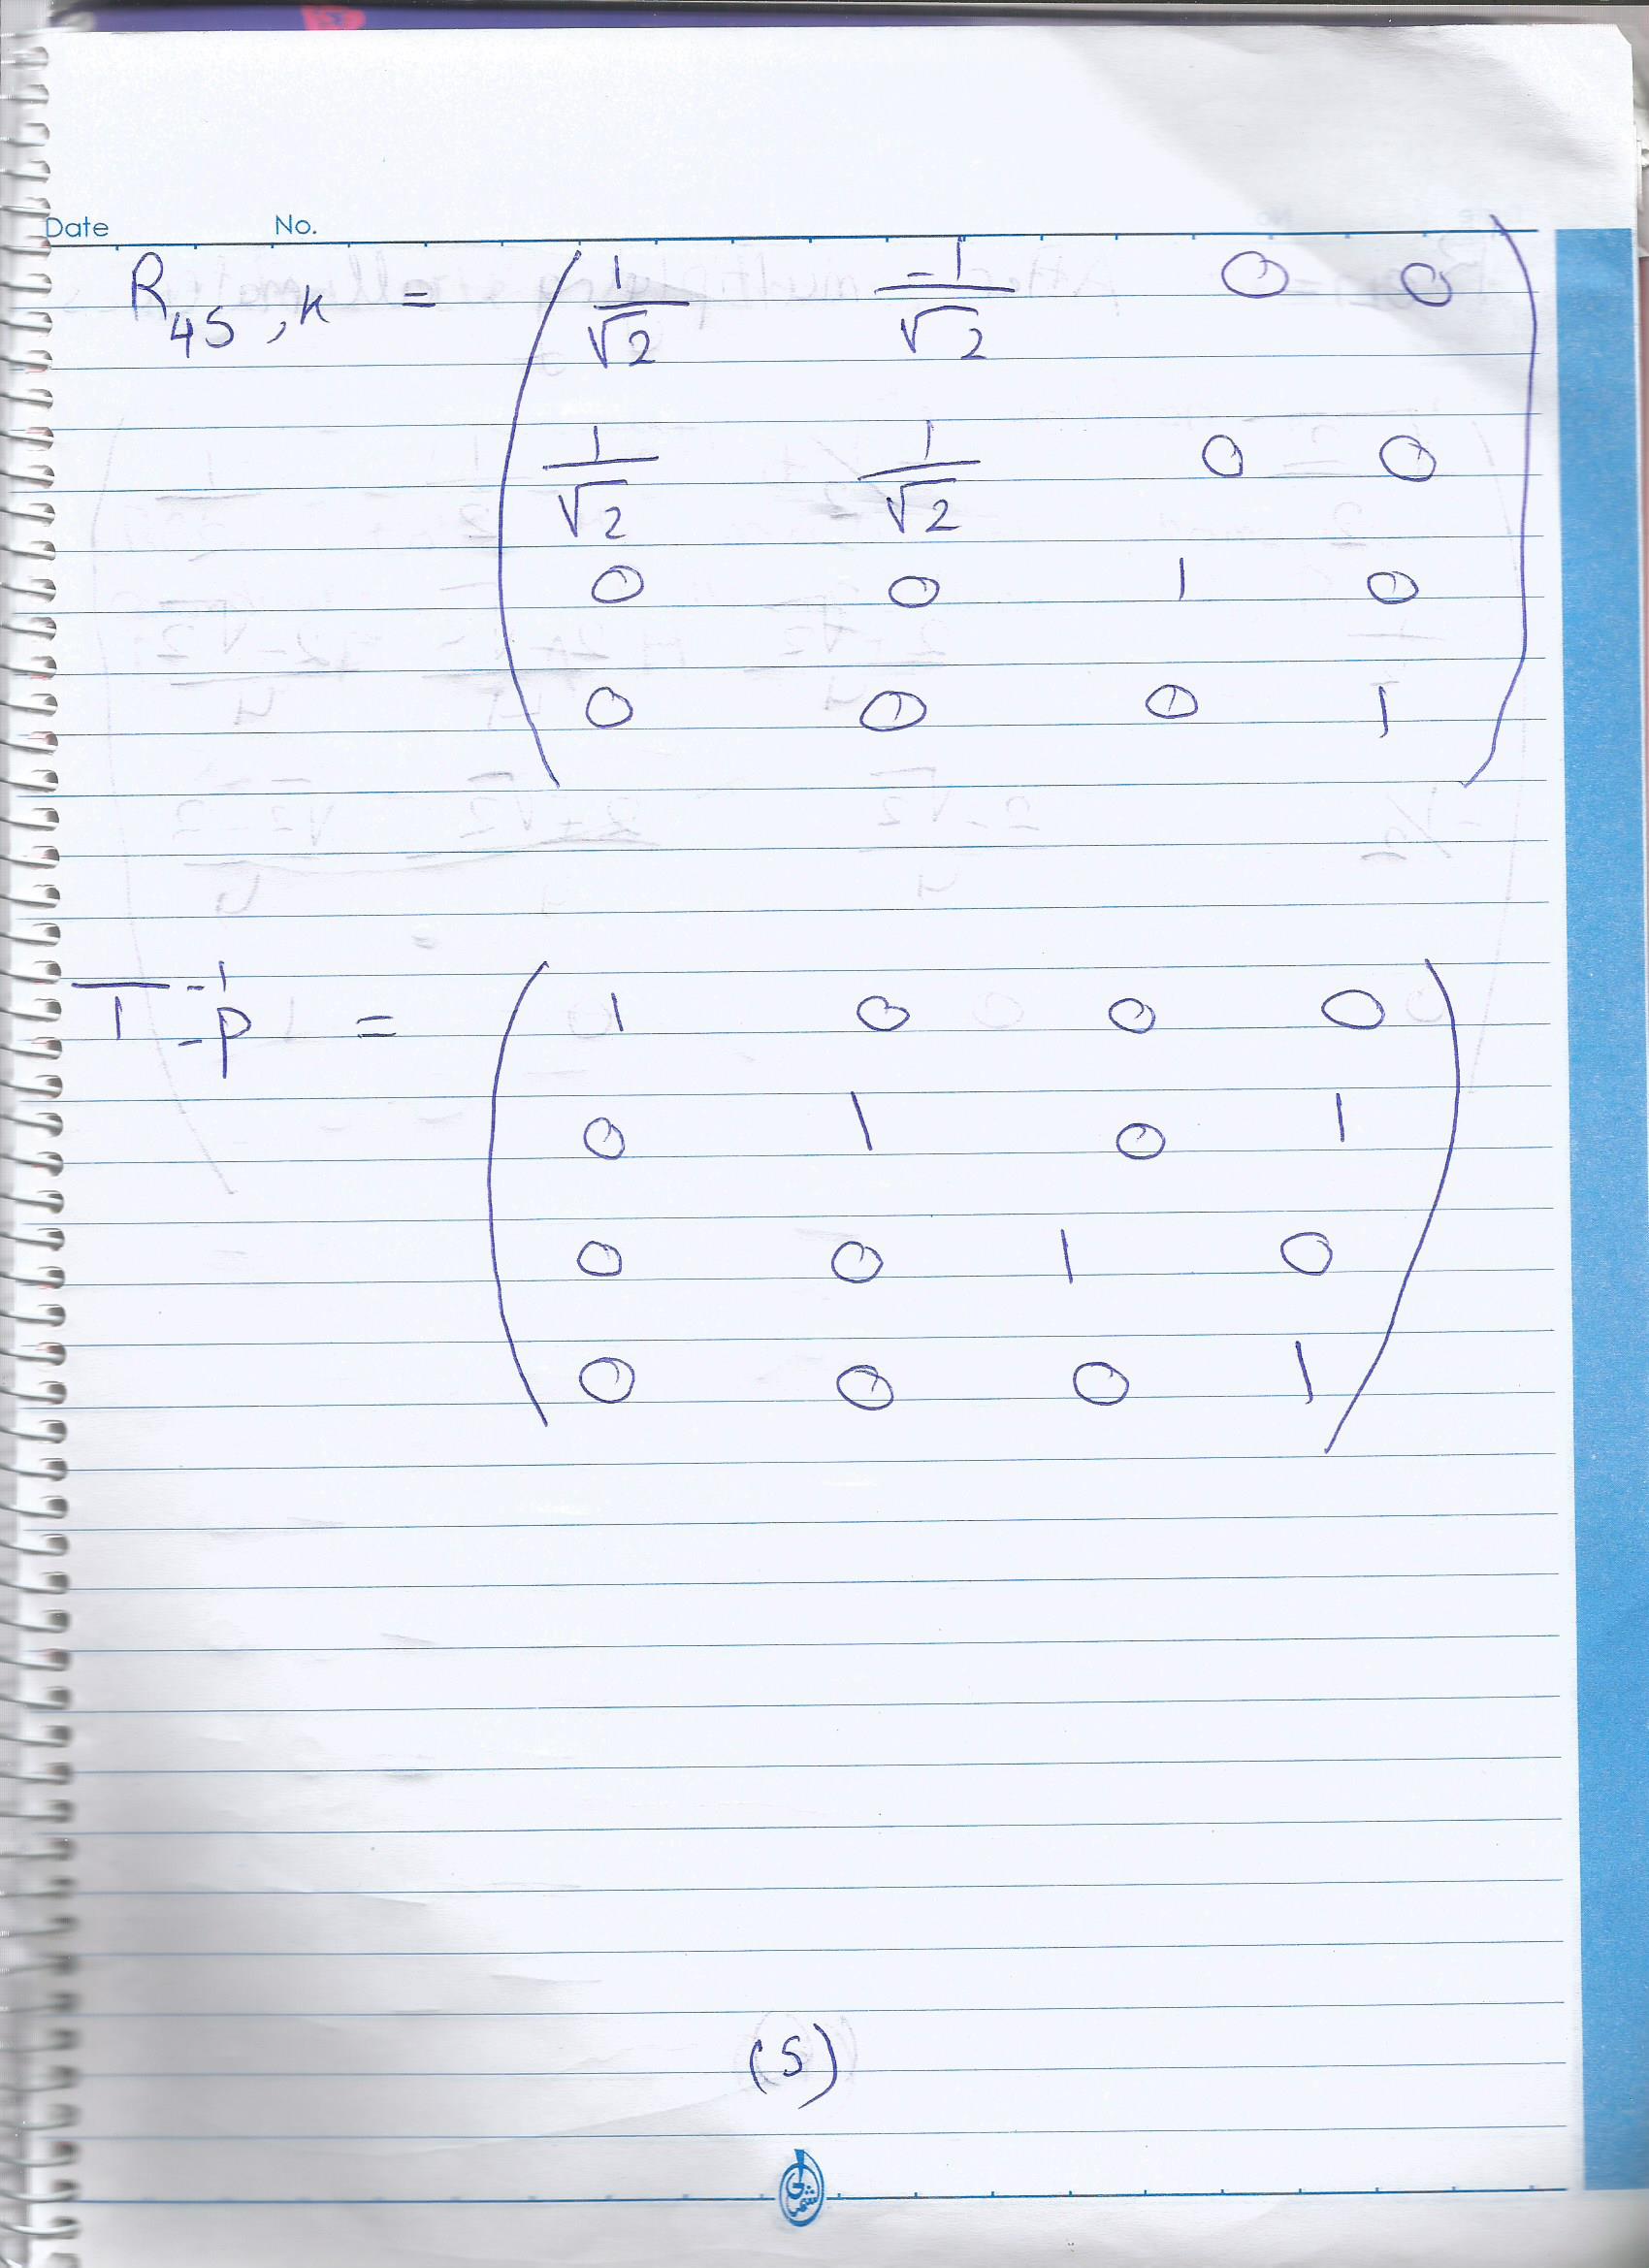 Date No.
R45,k = ( 1/√2 -1/√2 0 0
1/√2 1/√2 0 0
0 0 1 0
0 0 0 1 )
T-p^-1 = ( 1 0 0 0
0 1 0 1
0 0 1 0
0 0 0 1 )
(5)